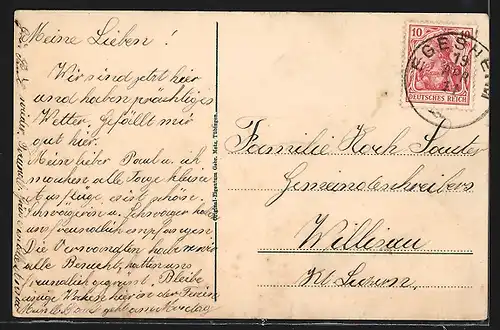 Meine Lieben!
Wir sind jetzt hier
und haben prächtiges
Wetter. Gefällt mir
gut hier.
Mein lieber Paul u. ich
machen alle Tage kleine
Ausflüge, ist schön.
Schwägerin u. Schwager haben
uns freundlich empfangen.
Die Verwandten haben wir
alle Besucht, hatten uns
freundlich gegrüsst. Bleibe
einige Wochen hier in der Ferien
Mein lb. Paul geht
Original-Eigentum Gebr. Metz, Tübingen.
10 10
DEUTSCHES REICH
EGESHEIM
19
Familie Koch Sauter
Gemeindeschreibers
Willisau
Kt. Luzern.